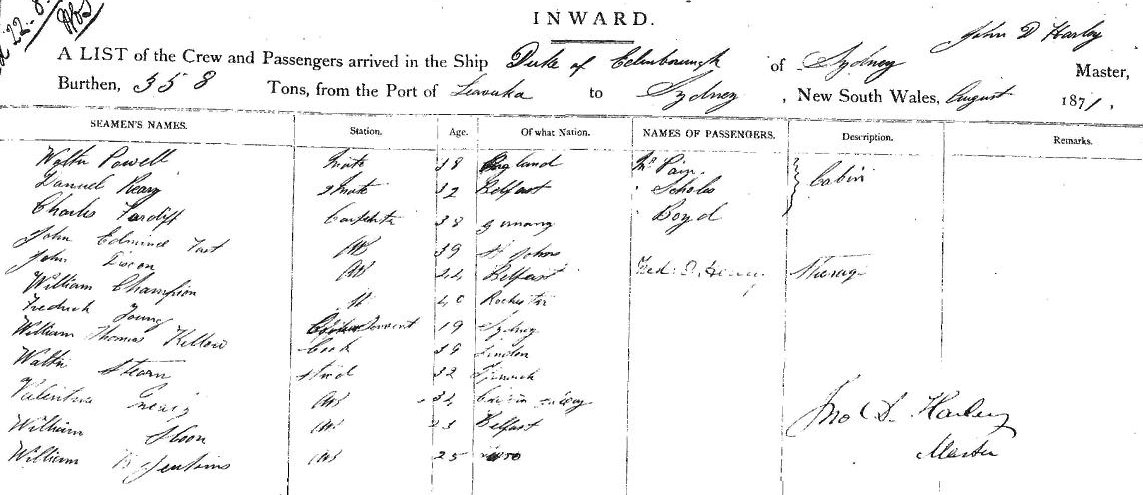 22.8.
INWARD.
John D Harley
A LIST of the Crew and Passengers arrived in the Ship Duke of Edinborough of Sydney Master,
Burthen, 358 Tons, from the Port of Levuka to Sydney, New South Wales, August 1871,
SEAMEN'S NAMES. Station. Age. Of what Nation. NAMES OF PASSENGERS. Description. Remarks.
Walter Powell Mate 38 England Mr Pain Cabin
Daniel 2 Mate 32 Belfast " Scholes
Charles Tardiff Carpenter 38 " Boyd
John Edmund AB 39 St Johns
John AB 22 Belfast Fred Steerage
William Champion AB 40 Rochester
Fredrick Young Servant 19 Sydney
William Thomas Kellow Cook 39 London
Walter Stearn Stwd 32 Ipswich
AB 34
William Sloon AB 23 Belfast
William Jenkins AB 25
Jno D. Harley
Master